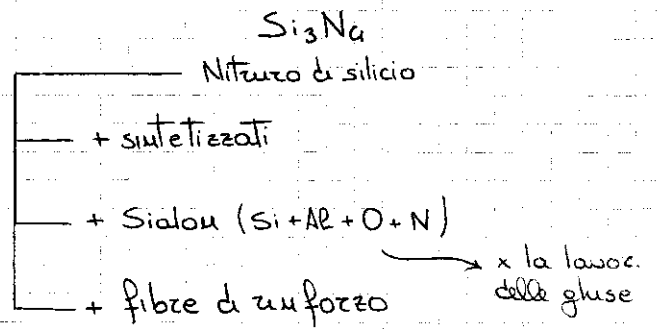 Si₃N₄
Nitruro di silicio
+ sintetizzati
+ Sialon (Si + Al + O + N)
x la lavor.
delle ghise
+ fibre di rinforzo